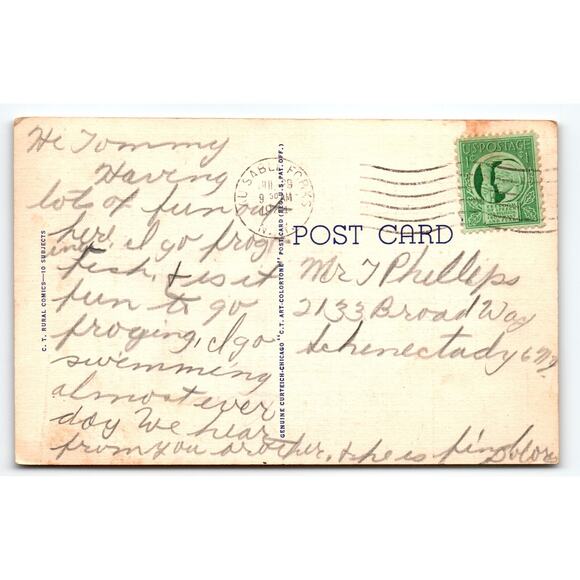 Hi Tommy
Having
lots of fun out
here. I go frog
ing,
fish, & is it
fun to go
froging, I go
swimming
almost ever
day We hear
from you brother, & he is fine
Dolor
POST CARD
Mr T Phillips
2133 Broad Way
Schenectady 6 N.Y.
AU SABLE FORKS
9 AM
N.Y.
U.S. POSTAGE
1¢
C. T. RURAL COMICS—10 SUBJECTS
GENUINE CURTEICH-CHICAGO "C. T. ART-COLORTONE" POST CARD (REG. U. S. PAT. OFF.)